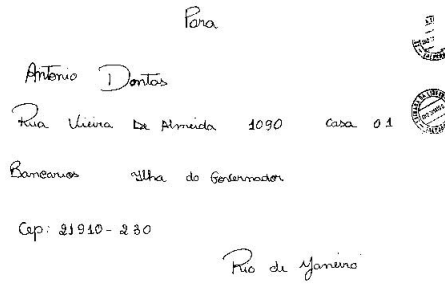 Para
Antonio Dantas
Rua Vieira De Almeida 1090 casa 01
Bancarios Ilha do Governador
Cep: 21910-230
Rio de Janeiro